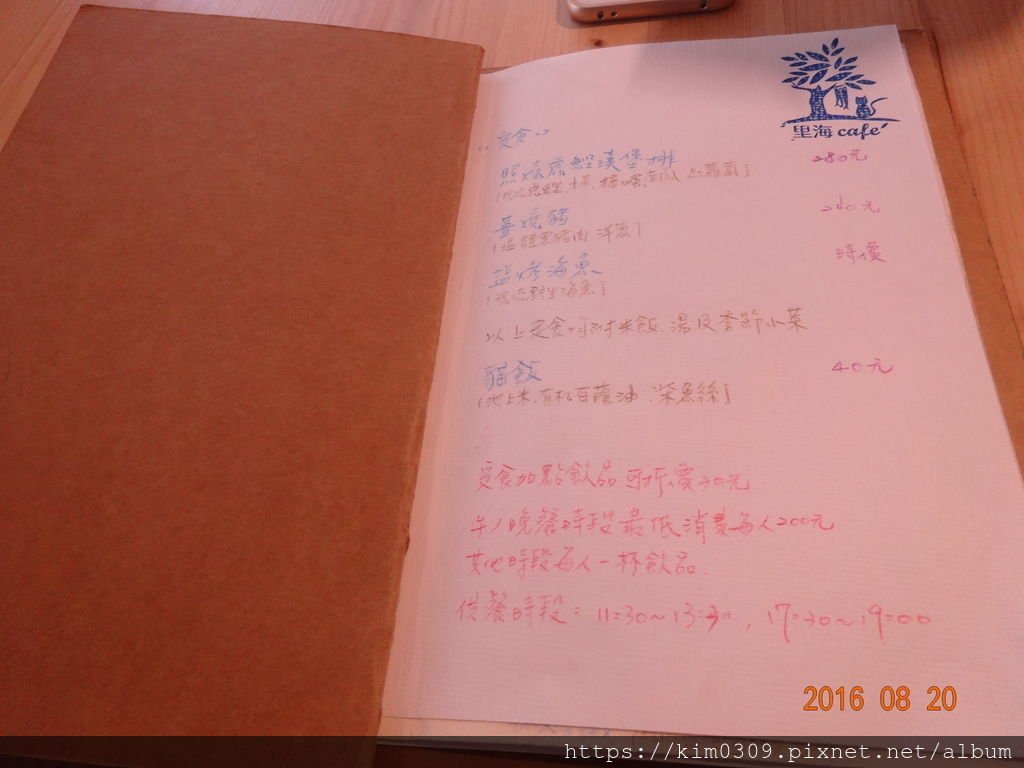 里海cafe
"定食"
照燒鷹魟漢堡排 280元
薑燒豬
(溫體黑豬肉 洋蔥)
塩烤海魚 時價
(現流野生海魚)
以上定食=附米飯.湯及季節小菜
貓飯 40元
(池上米.有机白蔭油.柴魚絲)
定食加點飲品可折價30元
午/晚餐時段最低消費每人200元
其他時段每人一杯飲品.
供餐時段: 11:30~13:30, 17:30~19:00
2016 08 20
https://kim0309.pixnet.net/album